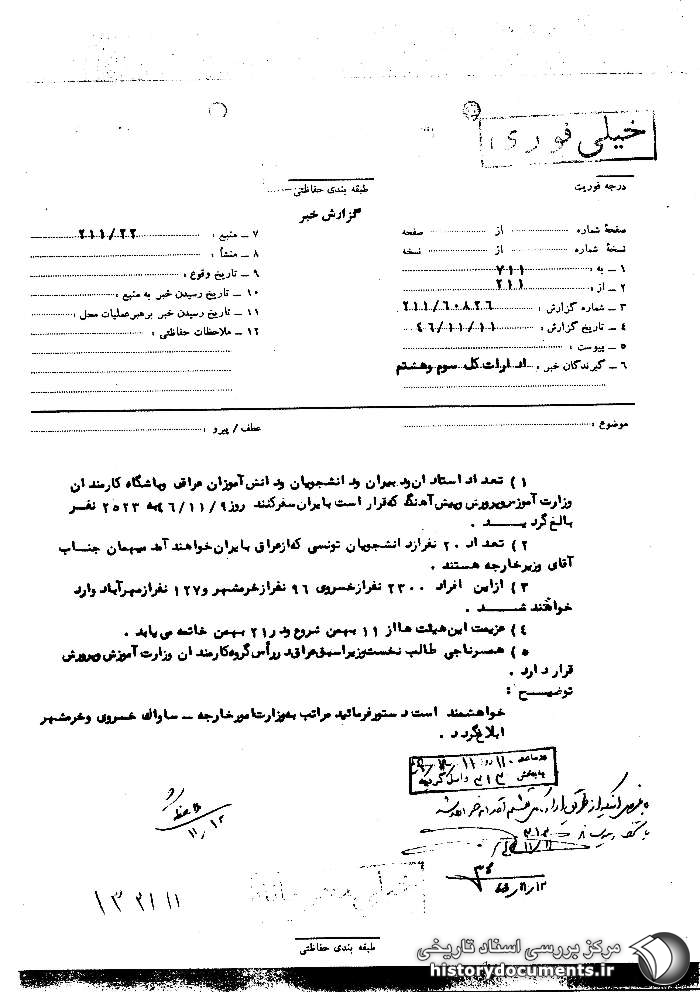 خیلی فوری
درجه فوریت
طبقه بندی حفاظتی
گزارش خبر
صفحهٔ شماره از صفحه
نسخهٔ شماره از نسخه
۱ ــ به : ۷۱۱
۲ ــ از : ۲۱۱
۳ ــ شماره گزارش : ۲۱۱/۶۰۸۲۶
۴ ــ تاریخ گزارش : ۴۶/۱۱/۱۱
۵ ــ پیوست :
۶ ــ گیرندگان خبر : ادارات کل سوم وهشتم
۷ ــ منبع : ۲۱۱/۲۲
۸ ــ منشأ :
۹ ــ تاریخ وقوع :
۱۰ ــ تاریخ رسیدن خبر به منبع :
۱۱ ــ تاریخ رسیدن خبر برهبرعملیات محل :
۱۲ ــ ملاحظات حفاظتی :
موضوع :
عطف / پیرو :
۱) تعداد استادان ودبیران ودانشجویان ودانش آموزان عراقی وباشگاه کارمندان
وزارت آموزش وپرورش وپیش آهنگ که قرار است بایران سفرکنند روز ۴۶/۱۱/۹ به ۲۵۲۳ نفر
بالغ گردید .
۲) تعداد ۲۰ نفرازدانشجویان تونسی که ازعراق بایران خواهند آمد میهمان جناب
آقای وزیرخارجه هستند .
۳) ازاین افراد ۲۳۰۰ نفرازخسروی ۹۶ نفرازخرمشهر و۱۲۷ نفرازمهرآباد وارد
خواهند شد .
۴) عزیمت این هیئت هااز ۱۱ بهمن شروع ودر۲۱ بهمن خاتمه می یابد .
۵) همسرناجی طالب نخست وزیراسبق عراق درراس گروه کارمندان وزارت آموزش وپرورش
قرار دارد .
توضیح :
خواهشمند است دستورفرمائید مراتب به وزارت امورخارجه ــ ساواک خسروی وخرمشهر
ابلاغ گردد .
در ساعت ۱۱۰ روز ۱۱
به بخش ۳۱۲ واصل گردید
۳۱۲
ملاحظه شد
۱۱/۱۲
طبقه بندی حفاظتی
مرکز بررسی اسناد تاریخی
historydocuments.ir